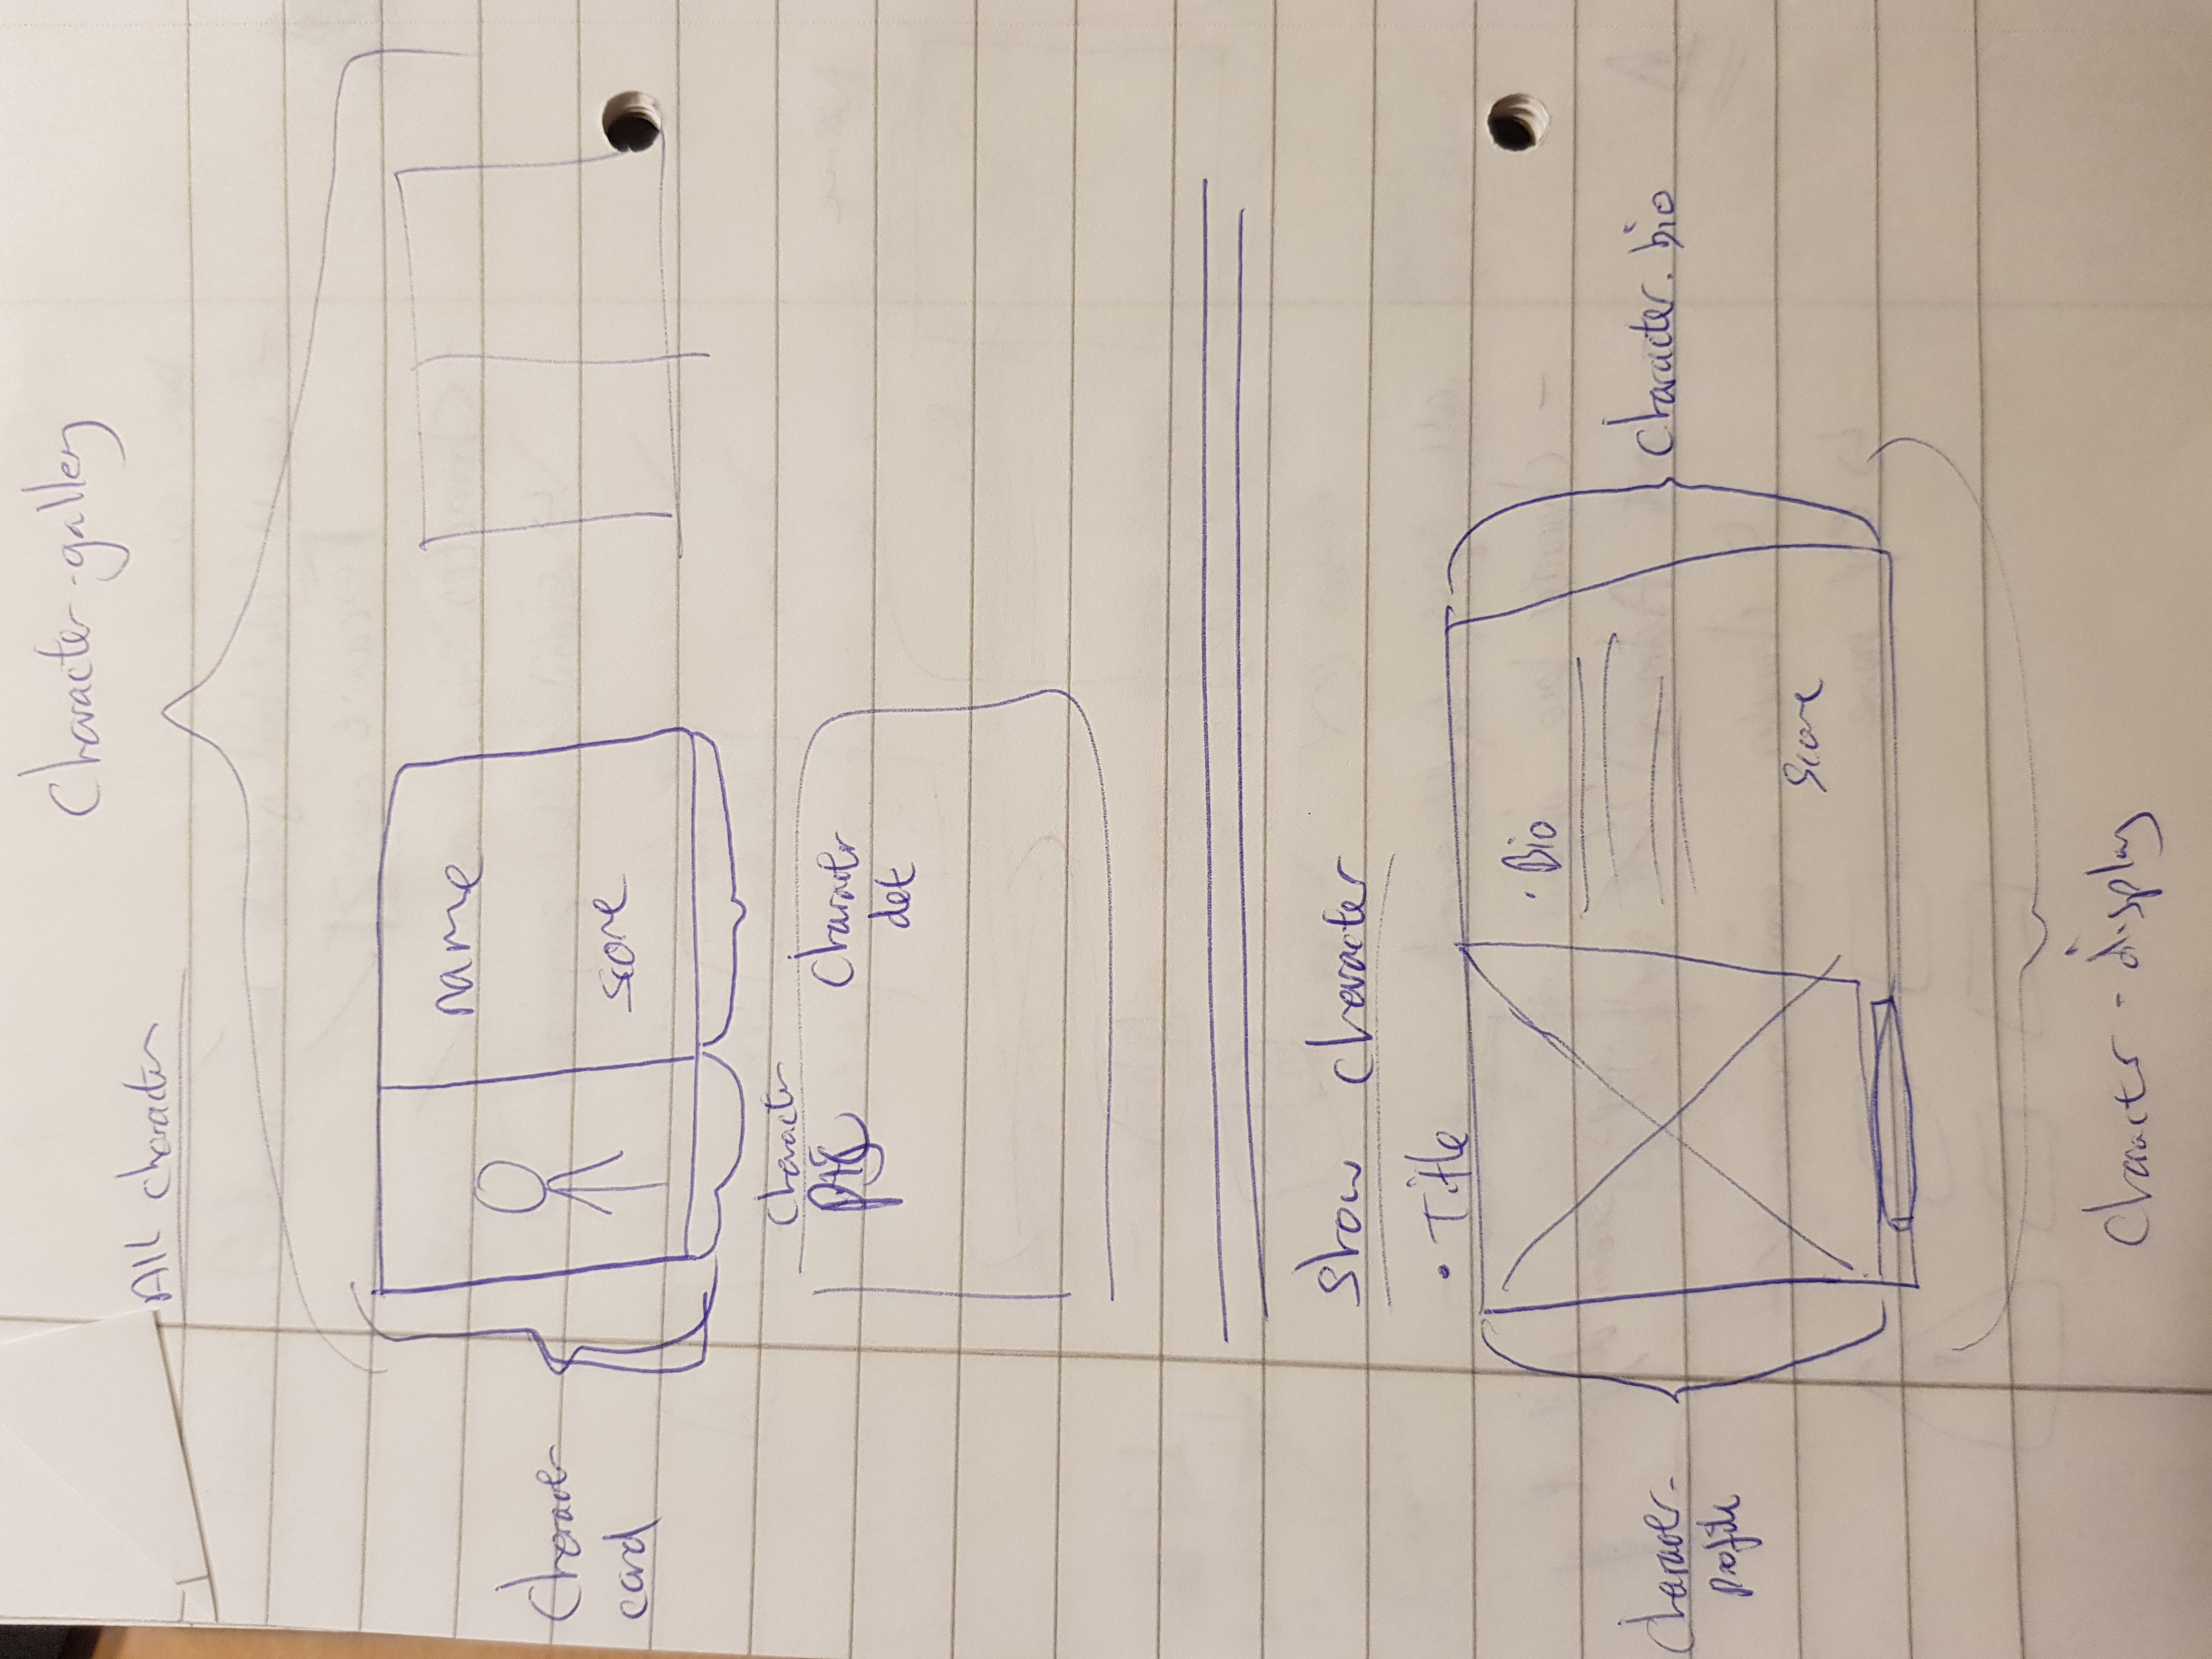 Character-gallery
All character
name
score
Character
card
Character
pic
Character
det
Show character
• Title
• Bio
Character-
profile
Character-bio
Score
Character-display